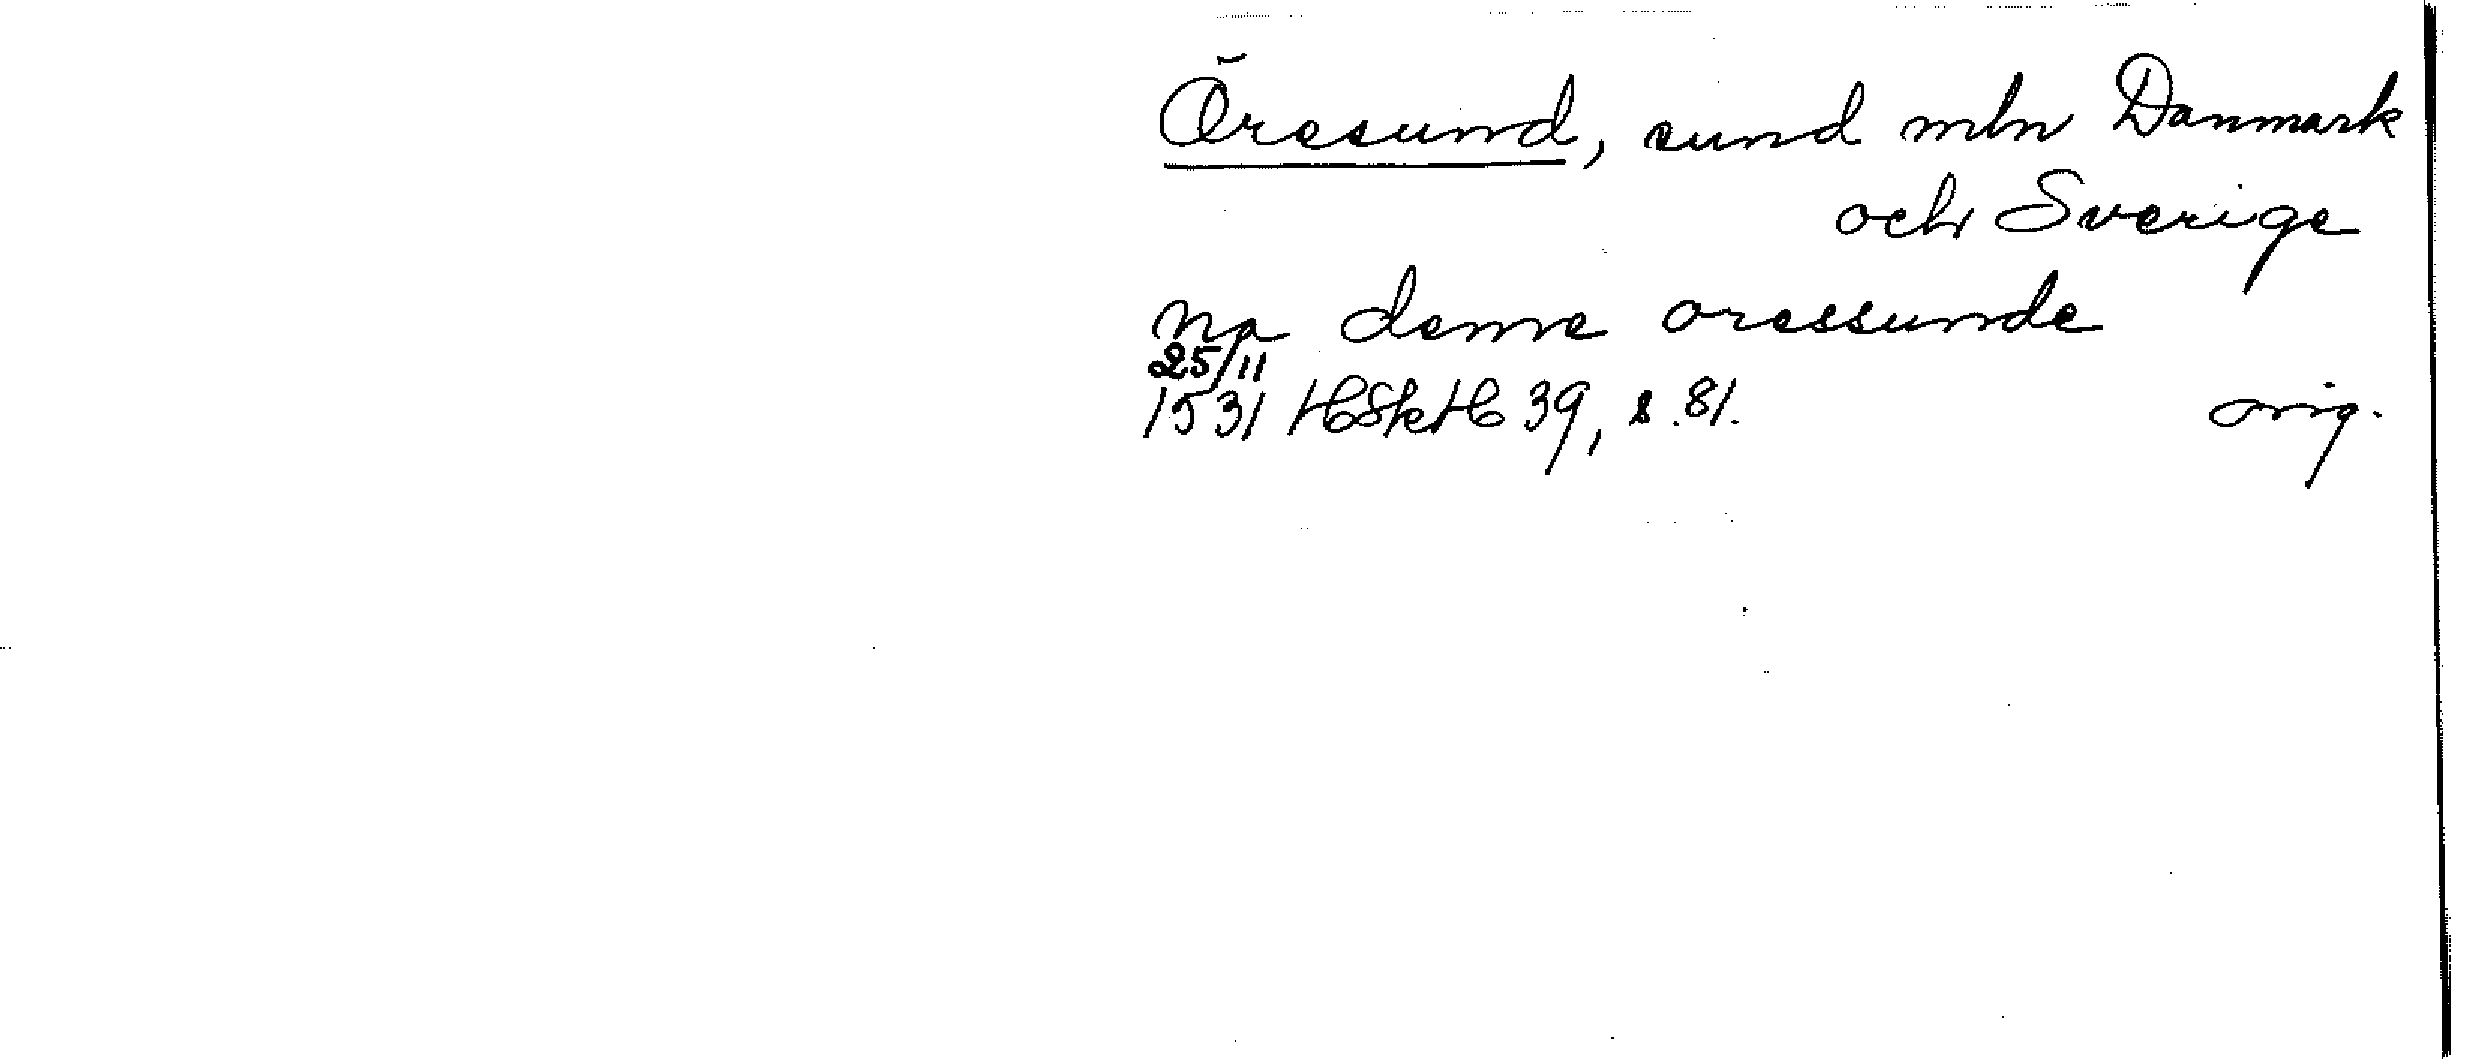 Öresund, sund mln Danmark
och Sverige
na deme oressunde
25/11
1531 HSkH 39, s. 81. orig.